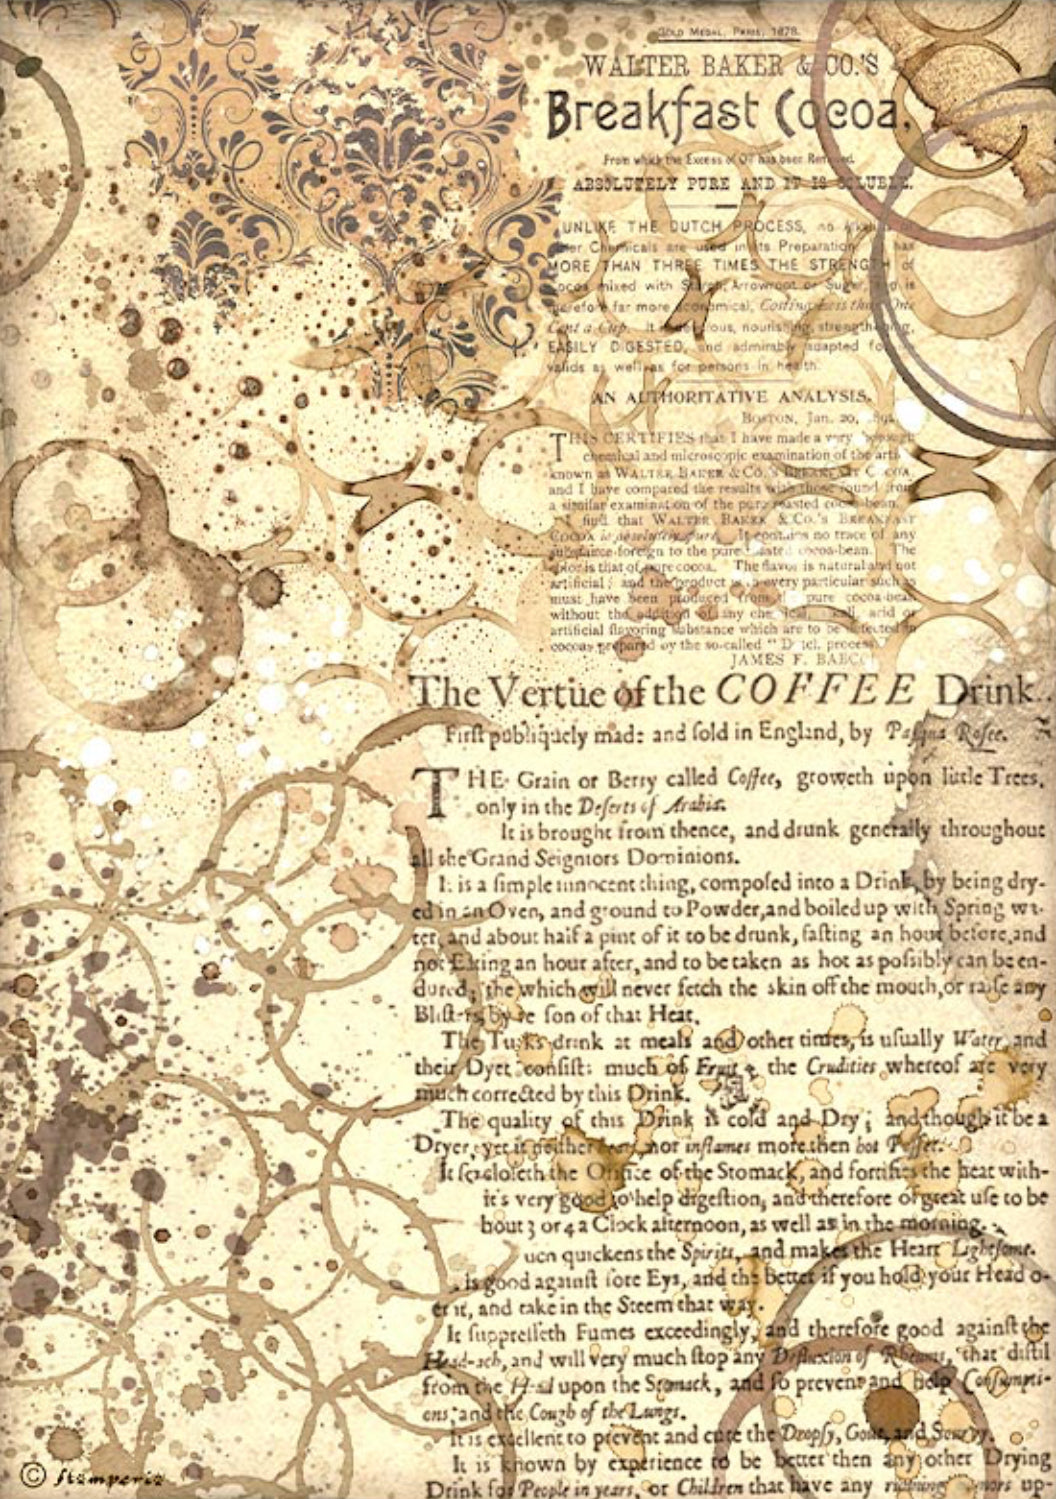 GOLD MEDAL, PARIS, 1878.
WALTER BAKER & CO.'S
Breakfast Cocoa,
From which the Excess of Oil has been Removed.
ABSOLUTELY PURE AND IT IS SOLUBLE.
UNLIKE THE DUTCH PROCESS, no
Chemicals are used in its Preparation. has
MORE THAN THREE TIMES THE STRENGTH of
mixed with Starch, Arrowroot or Sugar, is
far more economical, Costing less than One
Cent a Cup. It nourishing, strengthening,
EASILY DIGESTED, and admirably adapted
valids as well as for persons in health.
AN AUTHORITATIVE ANALYSIS.
BOSTON, Jan. 20,
THIS CERTIFIES that I have made a very
chemical and microscopic examination of the
known as WALTER BAKER & CO.'S BREAKFAST
and I have compared the results with those found from
a similar examination of the pure roasted cocoa-bean.
I find that WALTER BAKER & CO.'S BREAKFAST
COCOA is absolutely pure. It contains no trace of any
substance foreign to the pure roasted cocoa-bean. The
color is that of pure cocoa. The flavor is natural and not
artificial; and the product is in every particular such as
must have been produced from pure cocoa-bean
without the addition of any acid or
artificial flavoring substance which are to be detected in
cocoas prepared by the so-called " process
JAMES F.
The Vertue of the COFFEE Drink.
First publiquely made and sold in England, by Pasqua Rosee.
THE Grain or Berry called Coffee, groweth upon little Trees,
only in the Deserts of Arabia.
It is brought from thence, and drunk generally throughout
all the Grand Seigniors Dominions.
It is a simple innocent thing, composed into a Drink, by being dry-
ed in an Oven, and ground to Powder, and boiled up with Spring wa-
ter, and about half a pint of it to be drunk, fasting an hour before, and
not Eating an hour after, and to be taken as hot as possibly can be en-
dured; the which will never fetch the skin off the mouth, or raise any
Blisters by of that Heat.
The Turks drink at meals and other times, is usually Water, and
their Dyet consists much of Fruit, the Crudities whereof are very
much corrected by this Drink.
The quality of this Drink is cold and Dry; and though it be a
Dryer, yet it neither nor inflames more then hot Posset.
the of the Stomack, and fortifies the heat with-
it's very good to help digestion, and therefore of great use to be
bout 3 or 4 a Clock afternoon, as well as in the morning.
quickens the Spirits, and makes the Heart Lightsome.
is good against sore Eys, and the better if you hold your Head o-
er it, and take in the Steem that way.
It suppresseth Fumes exceedingly, and therefore good against the
Head-ach, and will very much stop any Defluxion of Rheums, that distil
from the Head upon the Stomack, and so prevent and help Consumpti-
ons; and the Cough of the Lungs.
It is excellent to prevent and cure the Dropsy, Gout, and Scurvy.
It is known by experience to be better then any other Drying
Drink for People in years, or Children that have any up-
© Stamperia